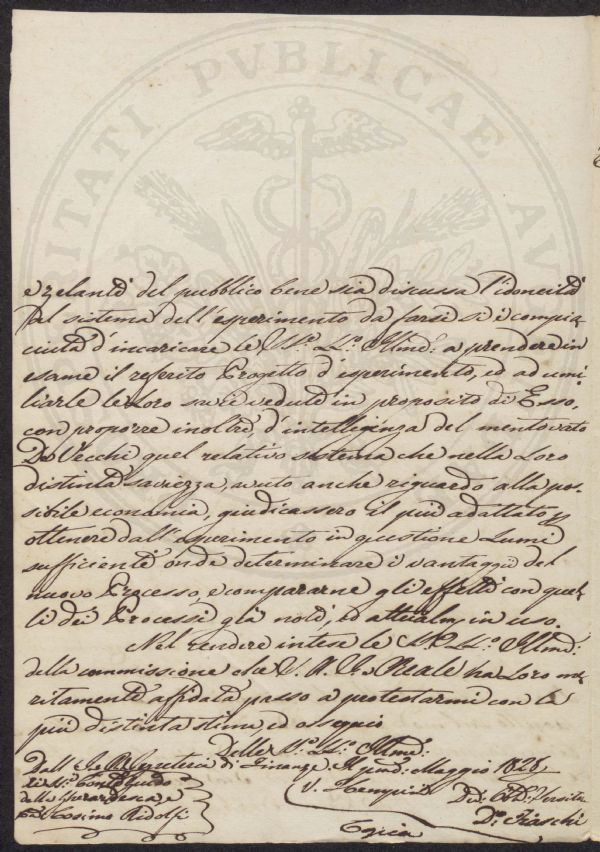 RITATI PVBLICAE AV
e zelanti del pubblico bene sia discussa l'idoneità
del sistema dell'esperimento da farsi si è compia,,
ciuta d'incaricare le LL. Illme: a prendere in
esame il referito Progetto d'esperimento, ed ad umi,,
liarle le Loro savie vedute in proposito di Esso,
con proporre inoltre, d'intelligenza del mentovato
De Vecchi quel relativo sistema che nella Loro
distinta saviezza, avuto anche riguardo alla pos,,
sibile economia, giudicassero il più adattato p
ottenere dall'esperimento in questione Lumi
sufficienti onde determinare i vantaggi del
nuovo Processo, e compararne gli effetti con quel,,
li dei Processi già noti, ed attualm. in uso.
Nel rendere intese le LL. Illme:
della commissione che S. A. I. e Reale ha Loro me,,
ritamente affidata passo a protestarmi con la
più distinta stima ed ossequio
Delle LL. Illme:
Dall' I. e R. Segreteria di Finanze Maggio 1828
Sig. Conte Guido
della Gherardesca e
Cosimo Ridolfi
Copia